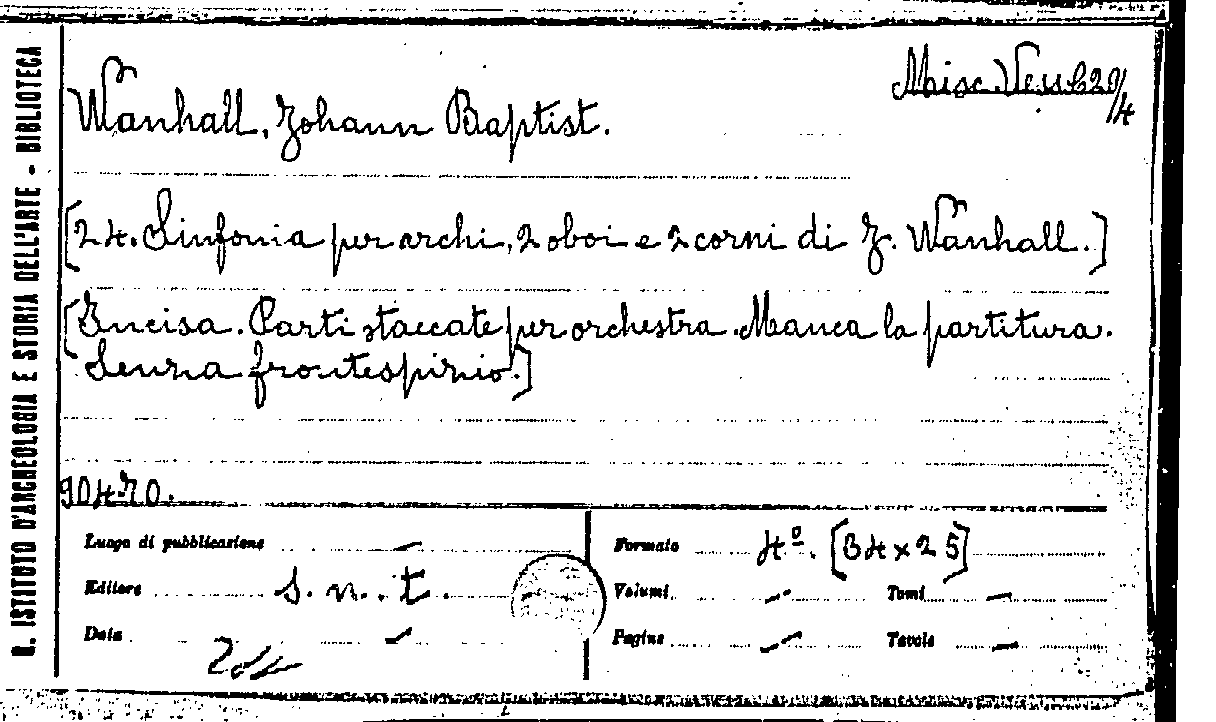 R. ISTITUTO D'ARCHEOLOGIA E STORIA DELL'ARTE - BIBLIOTECA
Misc. Vess. 620/4
Wanhall, Johann Baptist.
[24. Sinfonia per archi, 2 oboi e 2 corni di J. Wanhall.]
[Incisa. Parti staccate per orchestra. Manca la partitura.
Senza frontespizio.]
90470.
Luogo di pubblicazione —
Editore s. n. t.
Data —
Formato 4º. [34 x 25]
Volumi — Tomi —
Pagine — Tavole —